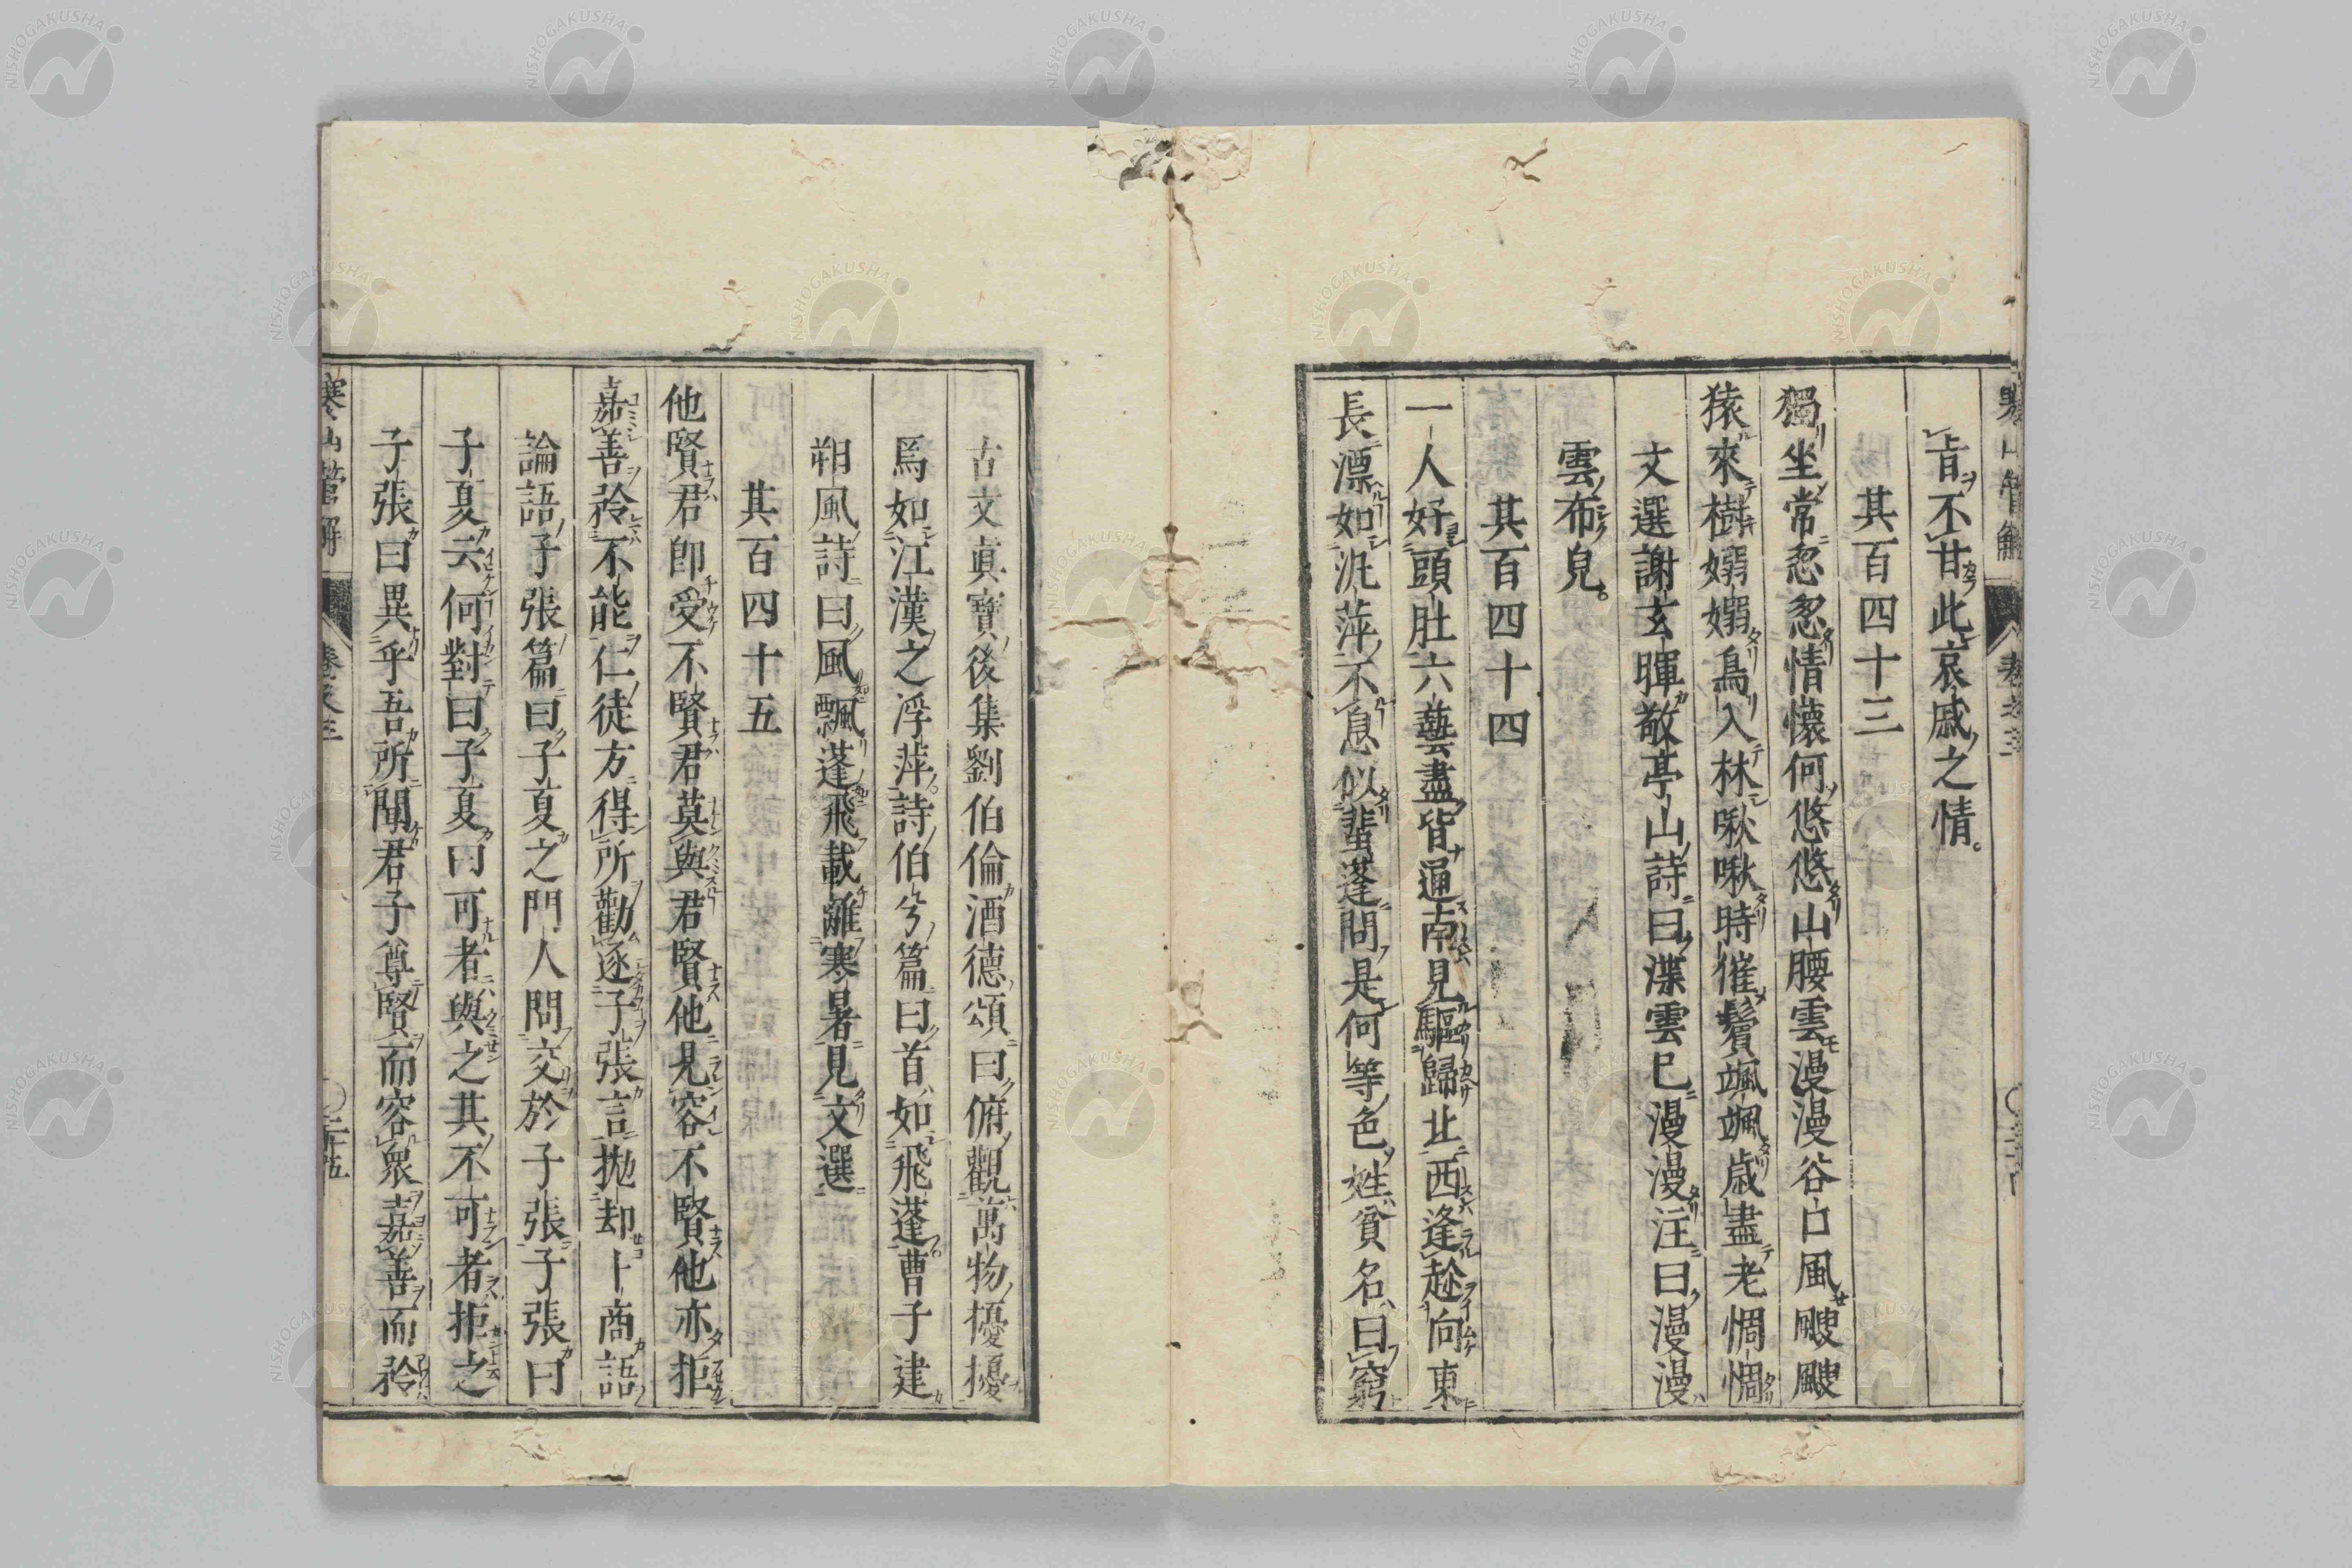 旨不甘此哀戚之情。
其百四十三
獨坐常忽忽情懷何悠悠山腰雲漫漫谷口風颼颼
猿來樹嫋嫋鳥入林啾啾時催鬢颯颯歳盡老惆惆
文選謝玄暉敬亭山詩曰渫雲已漫漫注曰漫漫
雲布皃。
其百四十四
一人好頭肚六藝盡皆通南見驅歸北西逢趁向東
長漂如泛萍不息似蜚蓬問是何等色姓貧名曰窮
古文眞寶後集劉伯倫酒德頌曰俯觀萬物擾擾
焉如江漢之浮萍詩伯兮篇曰首如飛蓬。曹子建
朔風詩曰風飄蓬飛載離寒暑見文選
其百四十五
他賢君卽受不賢君莫與君賢他見容不賢他亦拒
嘉善矜不能仁徒方得所勸逐子張言抛却卜商語
論語子張篇曰子夏之門人問交於子張子張曰
子夏云何對曰子夏曰可者與之其不可者拒之
子張曰異乎吾所聞君子尊賢而容衆嘉善而矜
寒山管解 卷之三 二十五
NISHOGAKUSHA